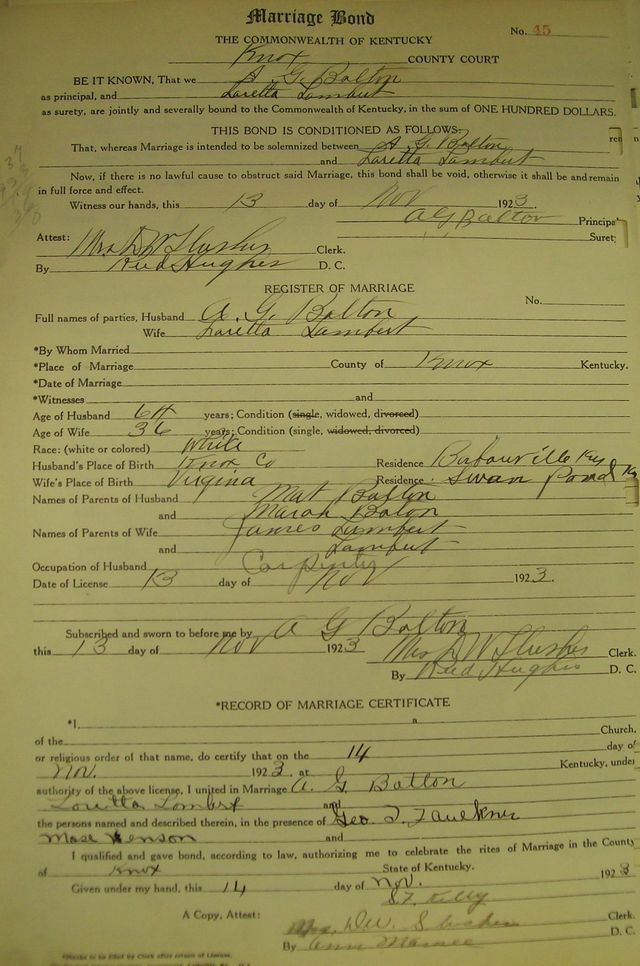 Marriage Bond
No. 45
THE COMMONWEALTH OF KENTUCKY
Knox COUNTY COURT
BE IT KNOWN, That we A G. Balton
as principal, and Loretta Lambert
as surety, are jointly and severally bound to the Commonwealth of Kentucky, in the sum of ONE HUNDRED DOLLARS.
THIS BOND IS CONDITIONED AS FOLLOWS:
That, whereas Marriage is intended to be solemnized between A G. Balton
and Loretta Lambert
Now, if there is no lawful cause to obstruct said Marriage, this bond shall be void, otherwise it shall be and remain
in full force and effect.
Witness our hands, this 13 day of Nov 1923.
A G Balton Principal
Surety
Attest: Mrs D W Slusher Clerk.
By Reed Hughes D. C.
REGISTER OF MARRIAGE
No.
Full names of parties, Husband A. G. Balton
Wife Loretta Lambert
*By Whom Married
*Place of Marriage County of Knox Kentucky.
*Date of Marriage
*Witnesses and
Age of Husband 64 years; Condition (single, widowed, divorced)
Age of Wife 36 years; Condition (single, widowed, divorced)
Race: (white or colored) White
Husband's Place of Birth Knox Co Residence Barbourville Ky
Wife's Place of Birth Virginia Residence Swan Pond Ky
Names of Parents of Husband Mat Balton
and Mariah Balton
Names of Parents of Wife James Lambert
and Lambert
Occupation of Husband Carpenter
Date of License 13 day of Nov 1923.
Subscribed and sworn to before me by A G Balton
this 13 day of Nov 1923 Mrs D W Slusher Clerk.
By Reed Hughes D. C.
*RECORD OF MARRIAGE CERTIFICATE
*I, a
of the Church.
or religious order of that name, do certify that on the 14 day of
Nov. 1923. at Kentucky, under
authority of the above license, I united in Marriage A. G. Balton
Loretta Lombert and
the persons named and described therein, in the presence of Geo. T. Faulkner
Mose Henson and
I qualified and gave bond, according to law, authorizing me to celebrate the rites of Marriage in the County
of Knox State of Kentucky.
Given under my hand, this 14 day of Nov. 1923
S.F. Kelly
A Copy, Attest: Mrs. D.W. Slusher Clerk.
By D. C.